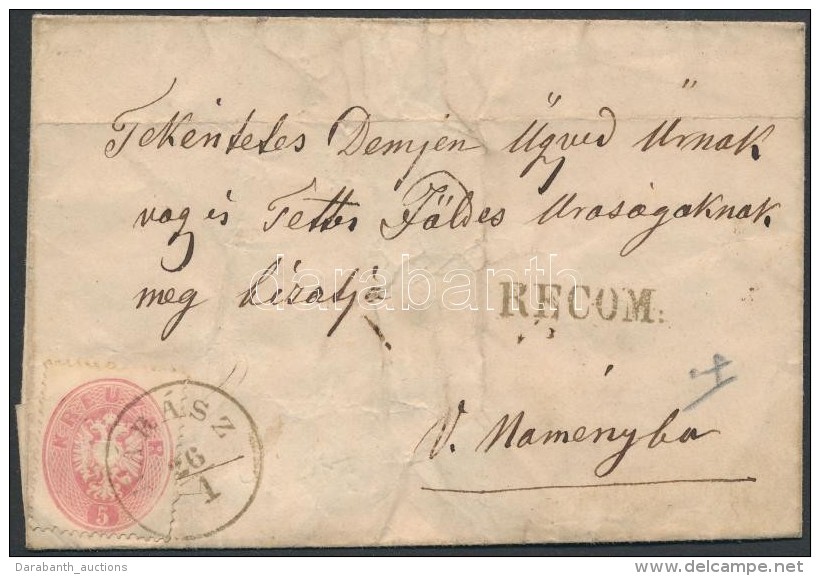 Tekéntetes Demjen Ügved Ürnak
vagis Tettes Földes Uraságaknak
meg
darabanth
RECOM.
V. Namenyba
KREUZER
5
26
1
Darabanth_auctions
www.delcampe.net